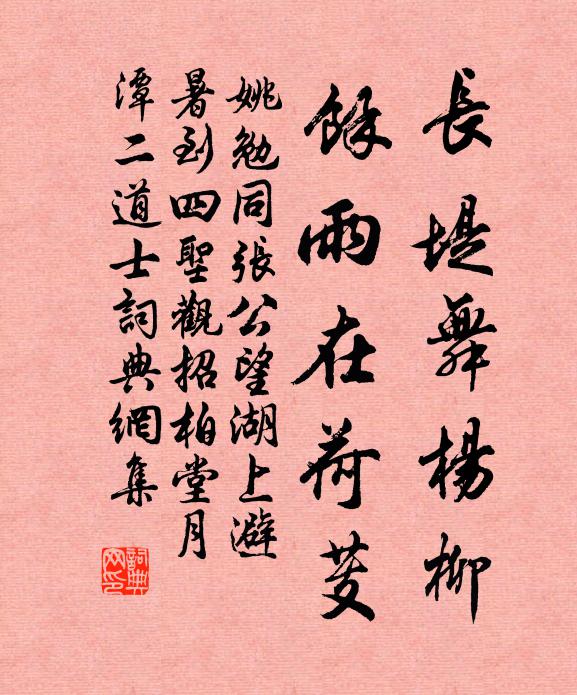 長堤舞楊柳
餘雨在荷芰
姚勉同張公望湖上避
暑到四聖觀招柏堂月
潭二道士詞典網集
詞典網印